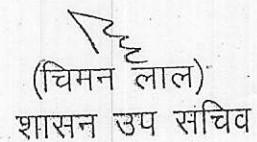 (चिमन लाल)
शासन उप सचिव